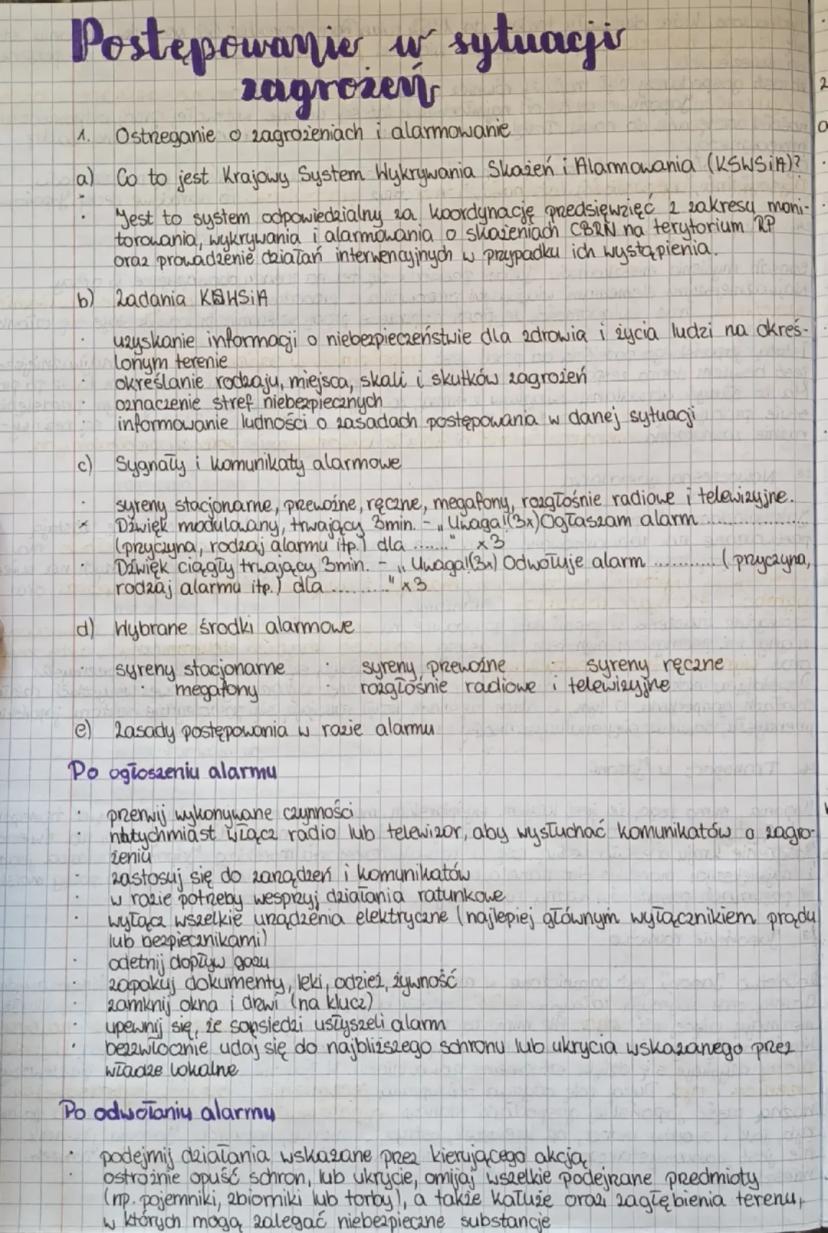 Postępowanie w sytuacji
zagrożeń
1. Ostrzeganie o zagrożeniach i alarmowanie
a) Co to jest Krajowy System Wykrywania Skażeń i Alarmowania (KSWSiA)?
· Jest to system odpowiedzialny za koordynację przedsięwzięć z zakresu moni-
torowania, wykrywania i alarmowania o skażeniach CBRN na terytorium RP
oraz prowadzenie działań interwencyjnych w przypadku ich wystąpienia.
b) Zadania KSWSiA
· uzyskanie informacji o niebezpieczeństwie dla zdrowia i życia ludzi na okreś-
lonym terenie
· określanie rodzaju, miejsca, skali i skutków zagrożeń
· oznaczenie stref niebezpiecznych
· informowanie ludności o zasadach postępowania w danej sytuacji
c) Sygnały i komunikaty alarmowe
· syreny stacjonarne, przewoźne, ręczne, megafony, rozgłośnie radiowe i telewizyjne.
· Dźwięk modulowany, trwający 3min. - „Uwaga!(3x) Ogłaszam alarm ..............
(przyczyna, rodzaj alarmu itp.) dla ......." x3
· Dźwięk ciągły trwający 3min. - „Uwaga!(3x) Odwołuje alarm ............ (przyczyna,
rodzaj alarmu itp.) dla .........." x3
d) Wybrane środki alarmowe
· syreny stacjonarne · syreny przewoźne · syreny ręczne
· megafony · rozgłośnie radiowe i telewizyjne
e) Zasady postępowania w razie alarmu
Po ogłoszeniu alarmu
· przerwij wykonywane czynności
· natychmiast włącz radio lub telewizor, aby wysłuchać komunikatów o zagro-
żeniu
· zastosuj się do zarządzeń i komunikatów
· w razie potrzeby wesprzyj działania ratunkowe
· wyłącz wszelkie urządzenia elektryczne (najlepiej głównym wyłącznikiem prądu
lub bezpiecznikami)
· odetnij dopływ gazu
· zapakuj dokumenty, leki, odzież, żywność
· zamknij okna i drzwi (na klucz)
· upewnij się, że sąsiedzi usłyszeli alarm
· bezzwłocznie udaj się do najbliższego schronu lub ukrycia wskazanego przez
władze lokalne
Po odwołaniu alarmu
· podejmij działania wskazane przez kierującego akcją
· ostrożnie opuść schron, lub ukrycie, omijaj wszelkie podejrzane przedmioty
(np. pojemniki, zbiorniki lub torby), a także kałuże oraz zagłębienia terenu,
w których mogą zalegać niebezpieczne substancje